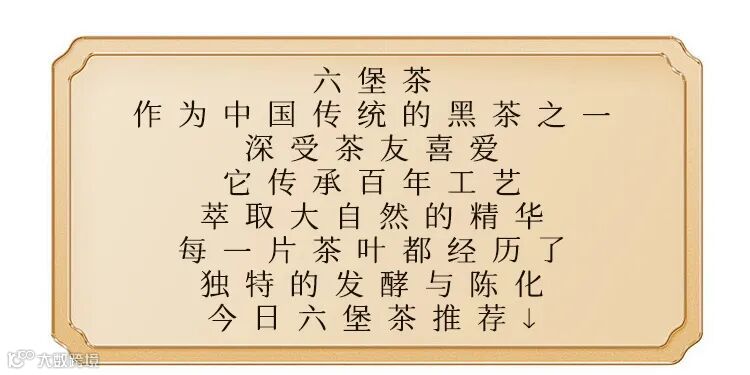 六堡茶
作为中国传统的黑茶之一
深受茶友喜爱
它传承百年工艺
萃取大自然的精华
每一片茶叶都经历了
独特的发酵与陈化
今日六堡茶推荐↓
大数跨境